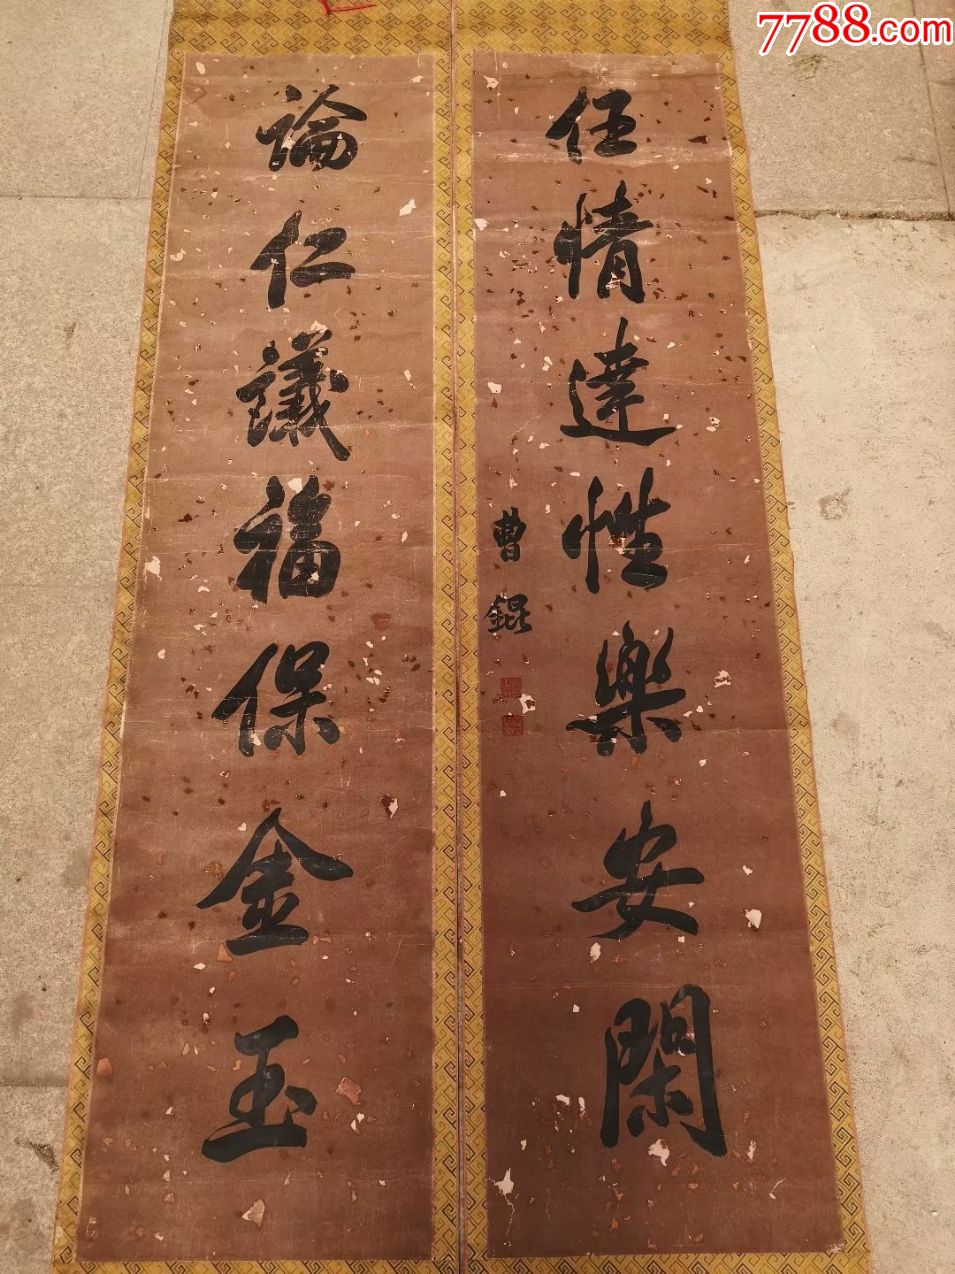 7788.com
任情達性樂安閑
曹錕
論仁議福保金玉